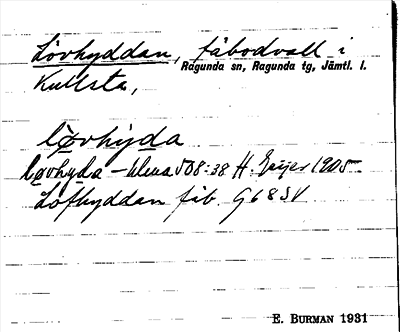 Lövhyddan, fäbodvall i
Ragunda sn, Ragunda tg, Jämtl. l.
Kullsta,
lövhyda
lövhyda – Ulma 508:38 H. Geijer 1905
Löfhyddan fäb. G68SV
E. BURMAN 1931